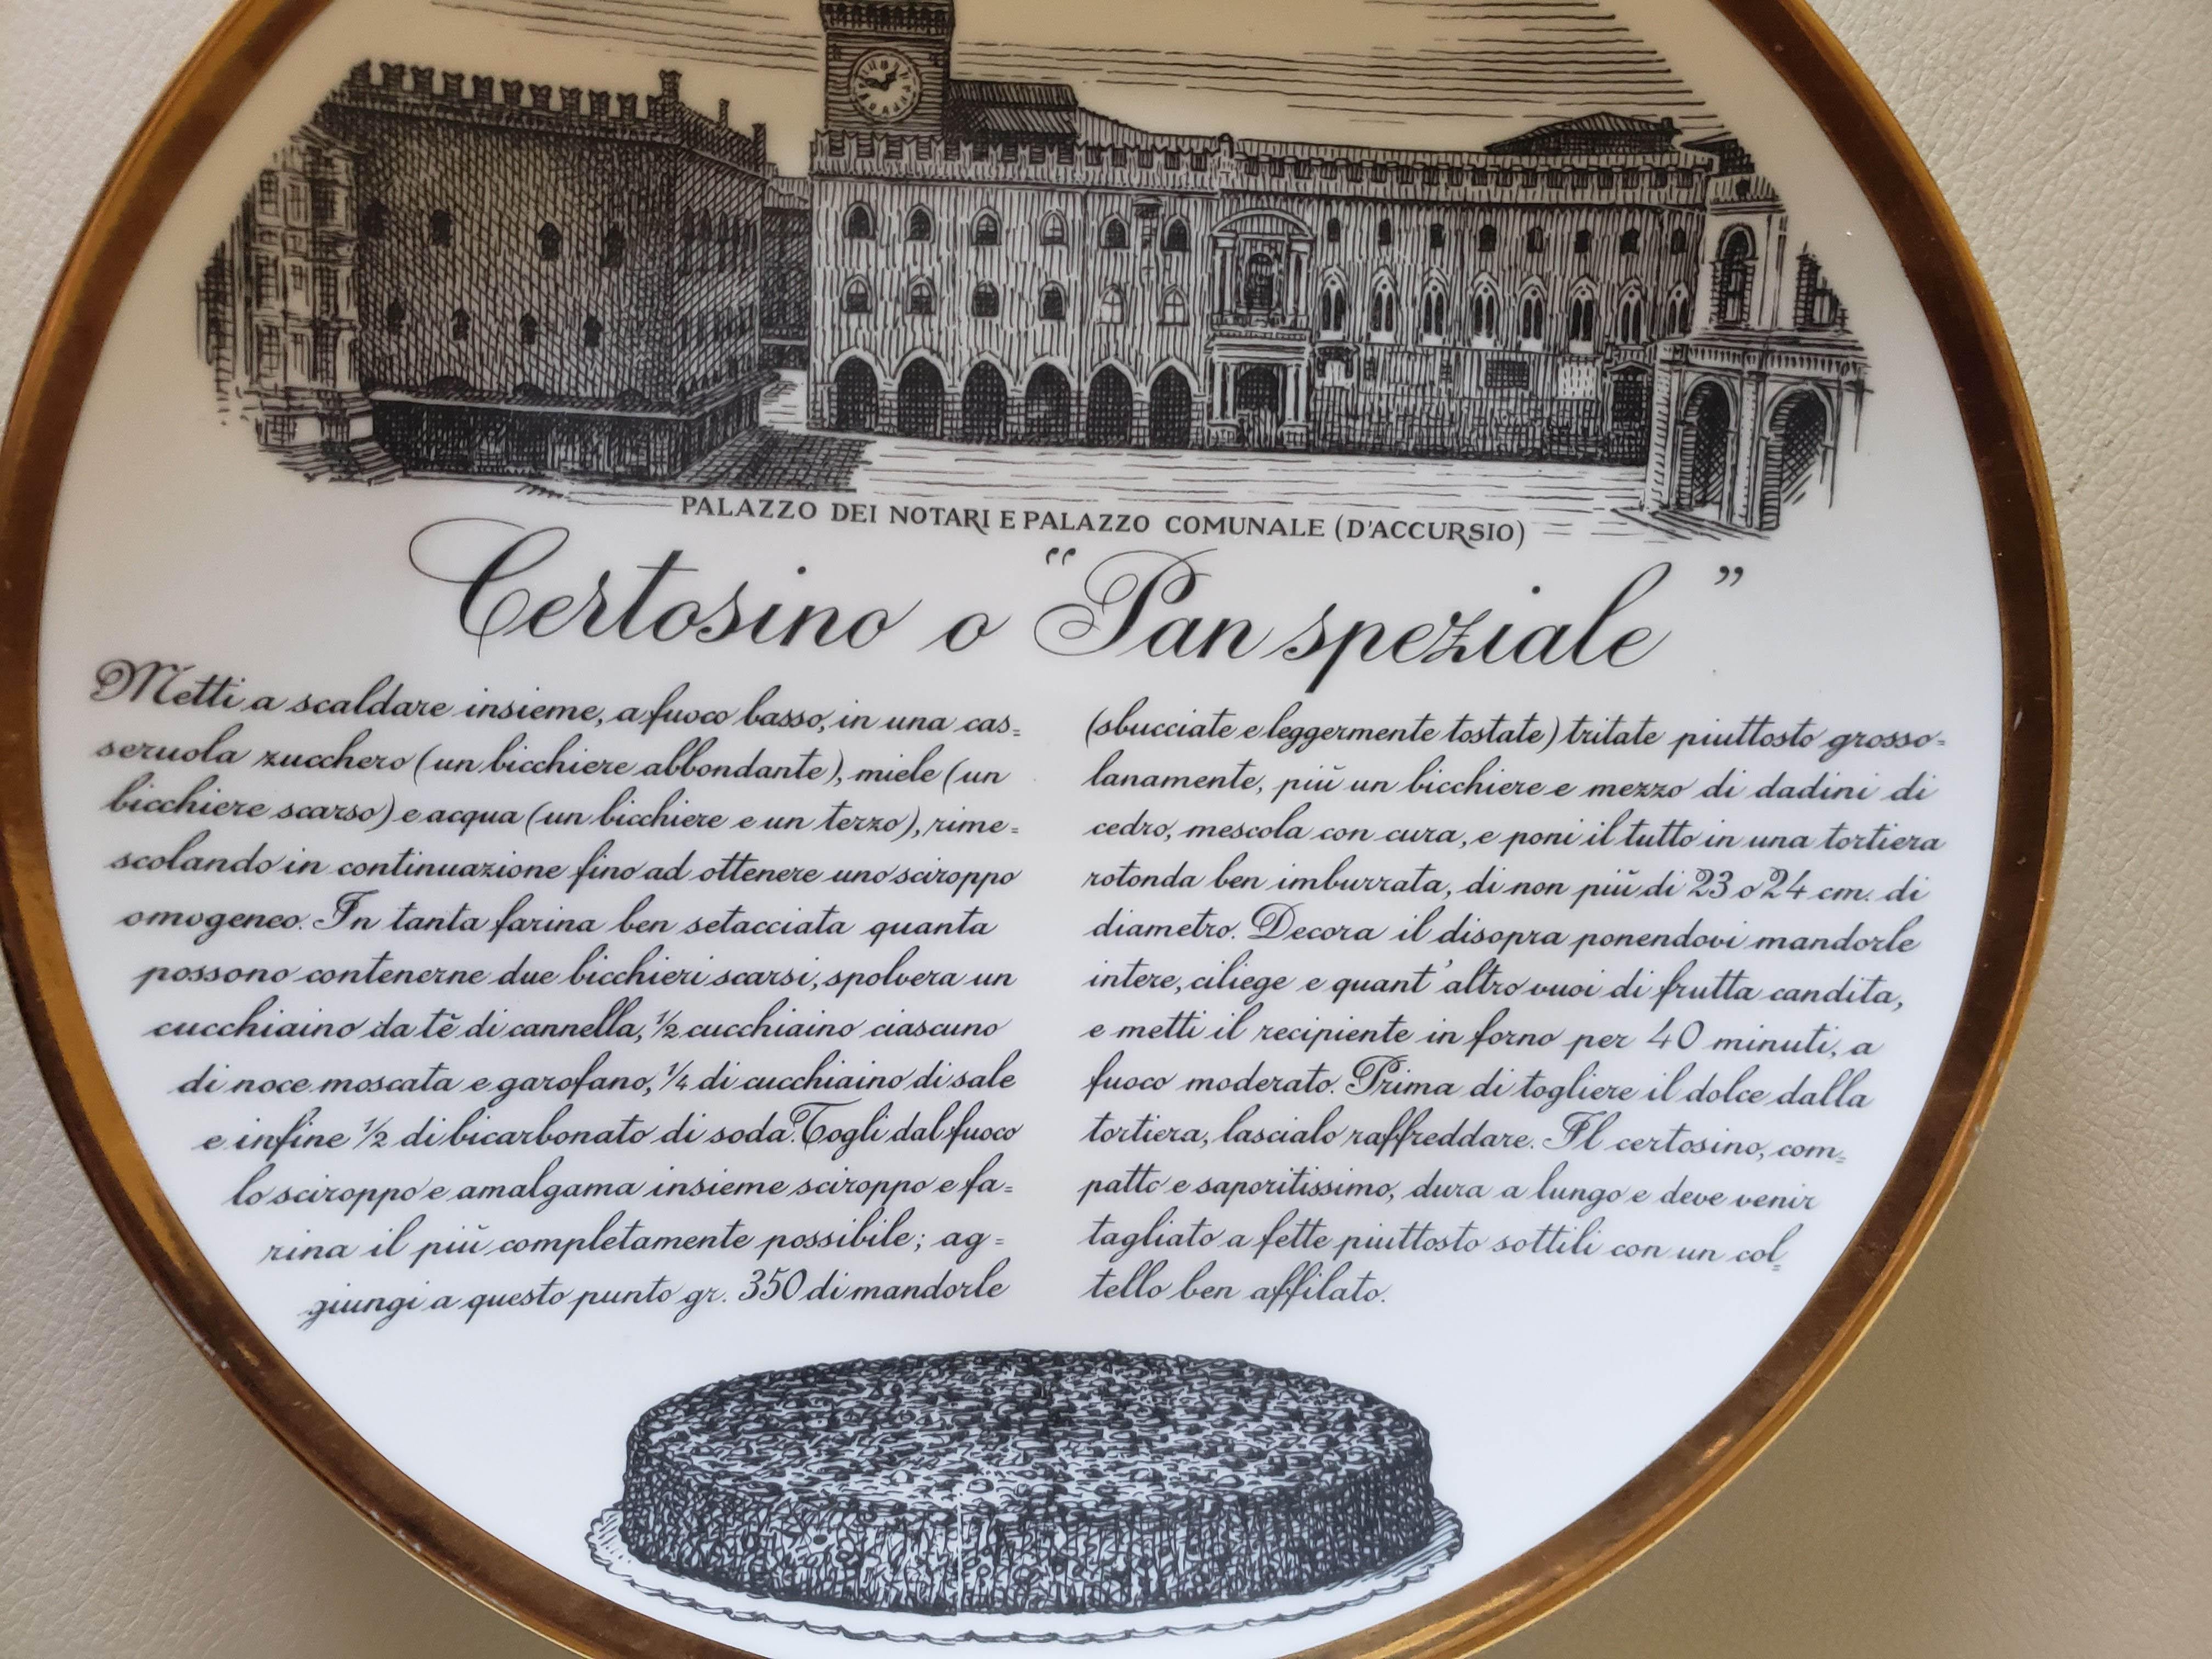 PALAZZO DEI NOTARI E PALAZZO COMUNALE (D'ACCURSIO)
Certosino o "Pan speziale"
Metti a scaldare insieme, a fuoco basso, in una cas=
seruola zucchero (un bicchiere abbondante), miele (un
bicchiere scarso) e acqua (un bicchiere e un terzo), rime=
scolando in continuazione fino ad ottenere uno sciroppo
omogeneo. In tanta farina ben setacciata quanta
possono contenerne due bicchieri scarsi, spolvera un
cucchiaino da tè di cannella, ½ cucchiaino ciascuno
di noce moscata e garofano, ¼ di cucchiaino di sale
e infine ½ di bicarbonato di soda. Togli dal fuoco
lo sciroppo e amalgama insieme sciroppo e fa=
rina il più completamente possibile; ag=
giungi a questo punto gr. 350 di mandorle
(sbucciate e leggermente tostate) tritate piuttosto grosso=
lanamente, più un bicchiere e mezzo di dadini di
cedro, mescola con cura, e poni il tutto in una tortiera
rotonda ben imburrata, di non più di 23 o 24 cm. di
diametro. Decora il disopra ponendovi mandorle
intere, ciliege e quant'altro vuoi di frutta candita,
e metti il recipiente in forno per 40 minuti, a
fuoco moderato. Prima di togliere il dolce dalla
tortiera, lascialo raffreddare. Il certosino, com=
patto e saporitissimo, dura a lungo e deve venir
tagliato a fette piuttosto sottili con un col=
tello ben affilato.